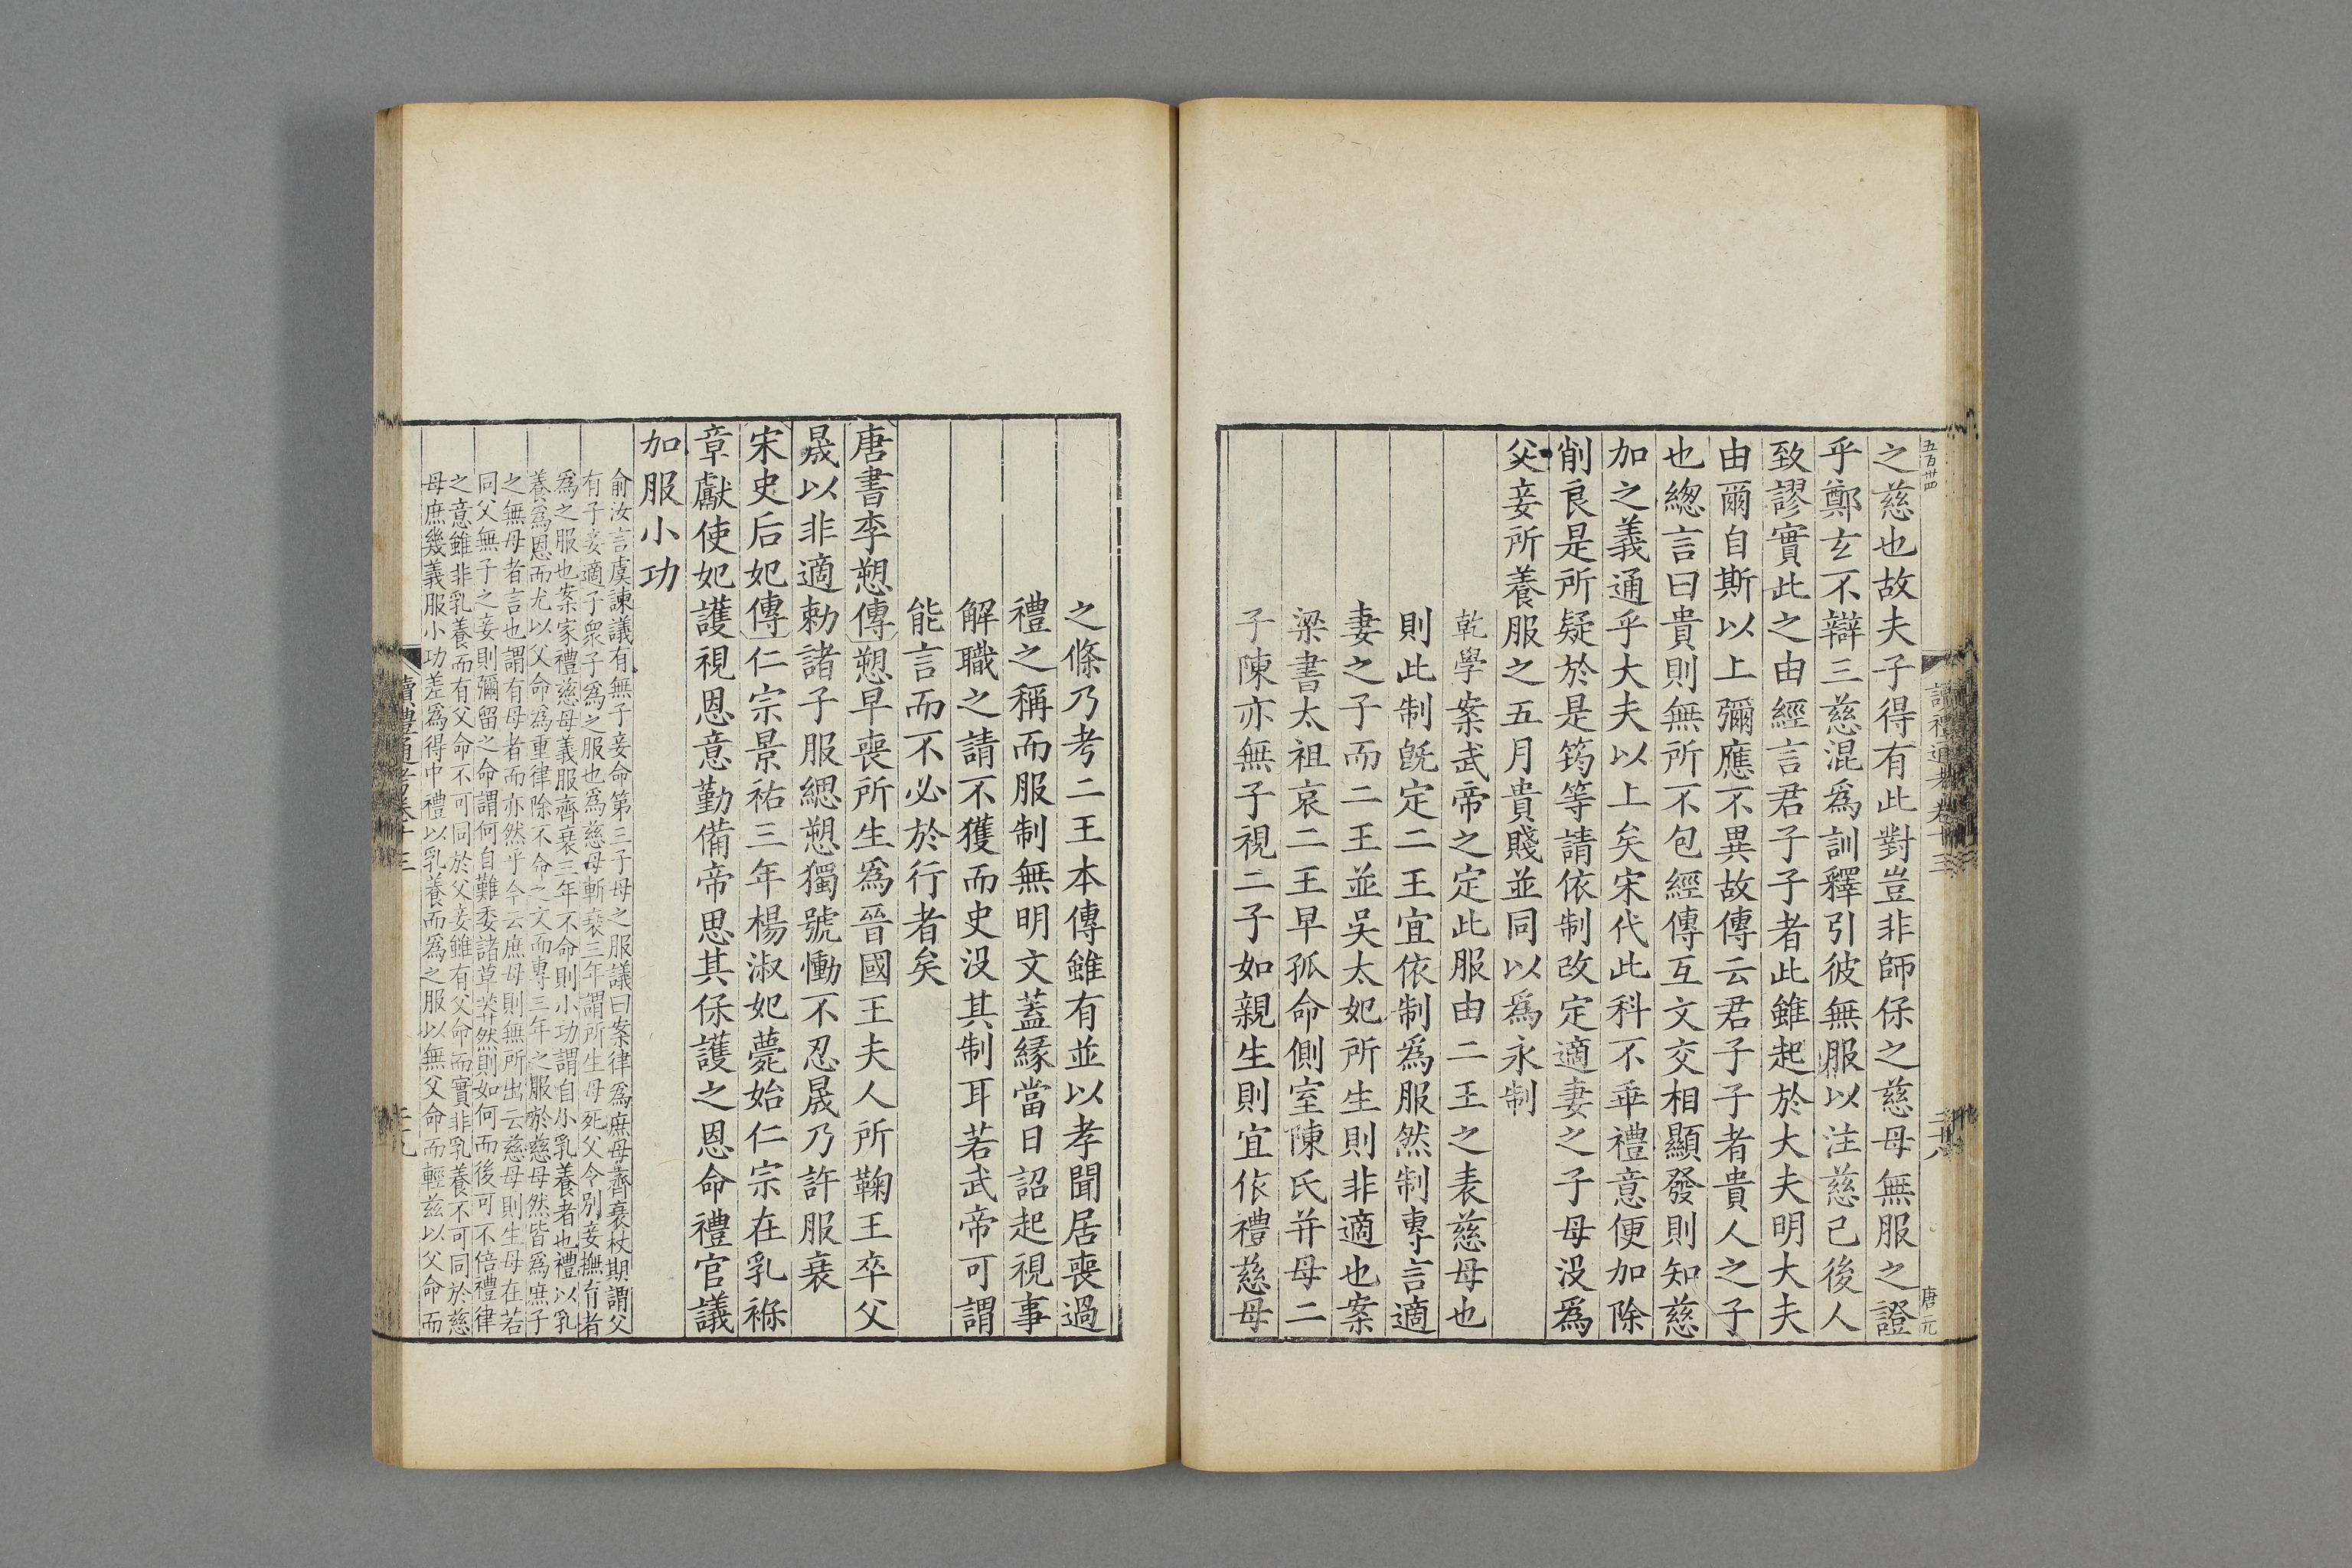 五百卄四
之慈也故夫子得有此對豈非師保之慈母無服之證
乎鄭玄不辯三慈混爲訓釋引彼無服以注慈己後人
致謬實此之由經言君子子者此雖起於大夫明大夫
由爾自斯以上彌應不異故傳云君子子者貴人之子
也緫言曰貴則無所不包經傳互文交相顯發則知慈
加之義通乎大夫以上矣宋代此科不乖禮意便加除
削良是所疑於是筠等請依制改定適妻之子母没爲
父妾所養服之五月貴賤並同以爲永制
乾學案武帝之定此服由二王之表慈母也
則此制旣定二王宜依制爲服然制專言適
妻之子而二王並吳太妃所生則非適也案
梁書太祖哀二王早孤命側室陳氏并母二
子陳亦無子視二子如親生則宜依禮慈母
唐元
之條乃考二王本傳雖有並以孝聞居喪過
禮之稱而服制無明文蓋緣當日詔起視事
解職之請不獲而史没其制耳若武帝可謂
能言而不必於行者矣
唐書李愬傳愬早喪所生爲晉國王夫人所鞠王卒父
晟以非適勑諸子服緦愬獨號慟不忍晟乃許服衰
宋史后妃傳仁宗景祐三年楊淑妃薨始仁宗在乳褓
章獻使妃護視恩意勤備帝思其保護之恩命禮官議
加服小功
俞汝言虞諫議有無子妾命第三子母之服議曰案律爲庶母齊衰杖期謂父
有子妾適子衆子爲之服也爲慈母斬衰三年謂所生母死父令別妾撫育者
爲之服也案家禮慈母義服齊衰三年不命則小功謂自小乳養者也禮以乳
養爲恩而尤以父命爲重律除不命之文而專三年之服於慈母然皆爲庶子
之無母者言也謂有母者而亦然乎今云庶母則無所出云慈母則生母在若
同父無子之妾則彌留之命謂何自難委諸草莽然則如何而後可不倍禮律
之意雖非乳養而有父命不可同於父妾雖有父命而實非乳養不可同於慈
母庶幾義服小功差爲得中禮以乳養而爲之服以無父命而輕茲以父命而
讀禮通考卷十三